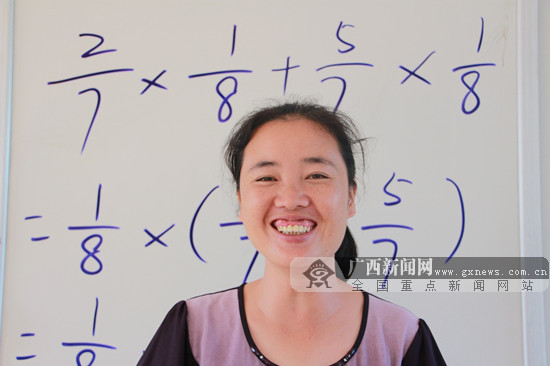 2/7 × 1/8 + 5/7 × 1/8
= 1/8 × ( /7 5/7 )
= 1/8
广西新闻网 www.gxnews.com.cn
全国重点新闻网站